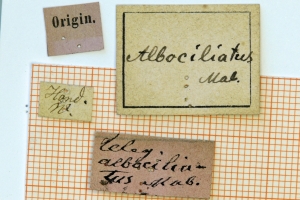 Origin.
Albociliatus
Mab.
Hond.
teleg.
albocilia-
tus Mab.